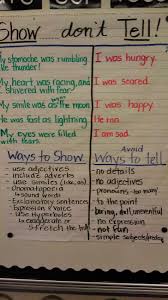 Show don't Tell!
My stomache was rumbling like thunder! I was hungry.
My heart was racing, and I shivered with fear. I was scared.
My smile was as the moon I was happy.
He was fast as lightning. He ran
My eyes were filled with tears. I am sad.
Ways to Show
- use adjectives
- include adverbs
- use similes (like, as)
- Onomatopoeia
- sound words
- Exclamatory sentences
- Expression & voice
- use Hyperboles
- Stretch the
Avoid
Ways to tell
- no details
- no adjectives
- pronouns, too many
- to the point!
- boring, dull, uneventful
- no expression
- not fun
- simple subjects